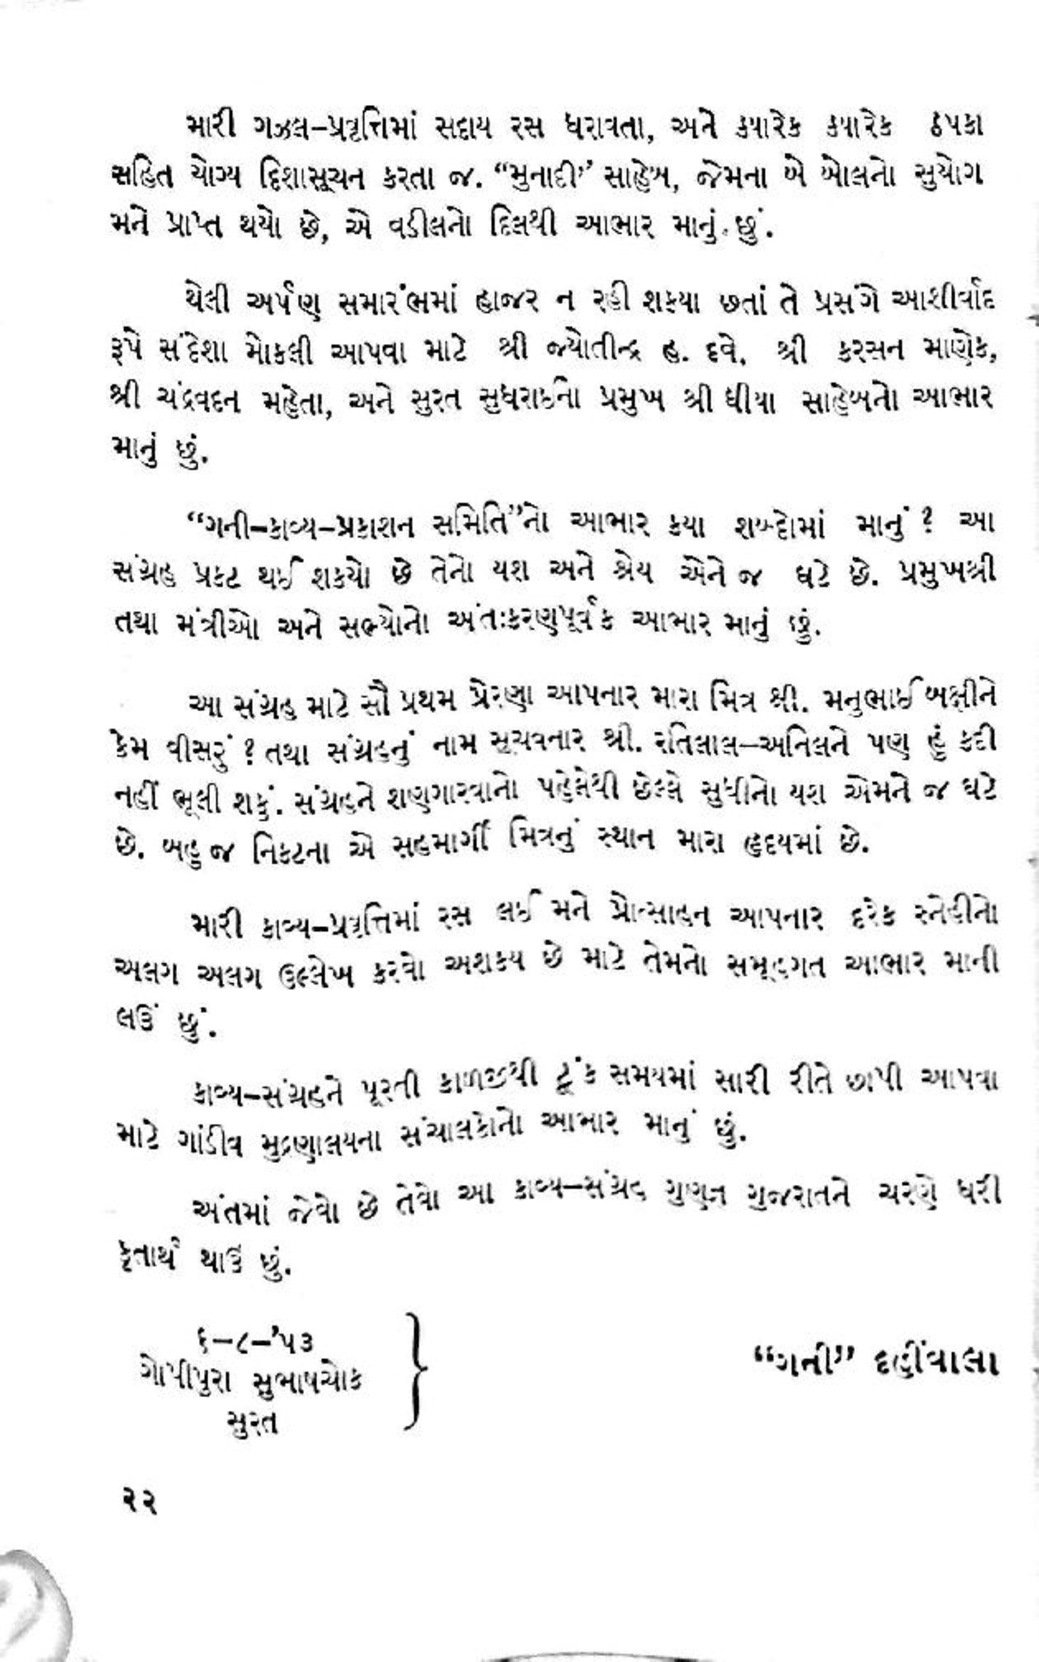 મારી ગઝલ–પ્રવૃત્તિમાં સદાય રસ ધરાવતા, અને ક્યારેક ક્યારેક ઠપકા
સહિત યોગ્ય દિશાસૂચન કરતા જ. “મુનાદી” સાહેબ, જેમના બે બોલનો સુયોગ
મને પ્રાપ્ત થયો છે, એ વડીલનો દિલથી આભાર માનું છું.
થેલી અર્પણ સમારંભમાં હાજર ન રહી શક્યા છતાં તે પ્રસંગે આશીર્વાદ
રૂપે સંદેશા મોકલી આપવા માટે શ્રી જ્યોતીન્દ્ર હ. દવે, શ્રી કરસન માણેક,
શ્રી ચંદ્રવદન મહેતા, અને સુરત સુધરાઈના પ્રમુખ શ્રી ધીયા સાહેબનો આભાર
માનું છું.
“ગની–કાવ્ય–પ્રકાશન સમિતિ”નો આભાર કયા શબ્દોમાં માનું ? આ
સંગ્રહ પ્રકટ થઈ શક્યો છે તેનો યશ અને શ્રેય એને જ ઘટે છે. પ્રમુખશ્રી
તથા મંત્રીઓ અને સભ્યોનો અંતઃકરણપૂર્વક આભાર માનું છું.
આ સંગ્રહ માટે સૌ પ્રથમ પ્રેરણા આપનાર મારા મિત્ર શ્રી. મનુભાઈ બક્ષીને
કેમ વીસરું ? તથા સંગ્રહનું નામ સૂચવનાર શ્રી. રતિલાલ–અનિલને પણ હું કદી
નહીં ભૂલી શકું. સંગ્રહને શણગારવાનો પહેલેથી છેલ્લે સુધીનો યશ એમને જ ઘટે
છે. બહુ જ નિકટના એ સહમાર્ગી મિત્રનું સ્થાન મારા હૃદયમાં છે.
મારી કાવ્ય–પ્રવૃત્તિમાં રસ લઈ મને પ્રોત્સાહન આપનાર દરેક સ્નેહીનો
અલગ અલગ ઉલ્લેખ કરવો અશક્ય છે માટે તેમનો સમૂહગત આભાર માની
લઉં છું.
કાવ્ય–સંગ્રહને પૂરતી કાળજીથી ટૂંક સમયમાં સારી રીતે છાપી આપવા
માટે ગાંડીવ મુદ્રણાલયના સંચાલકોનો આભાર માનું છું.
અંતમાં જેવો છે તેવો આ કાવ્ય–સંગ્રહ ગુણજ્ઞ ગુજરાતને ચરણે ધરી
કૃતાર્થ થાઉં છું.
૬–૮–’૫૩
ગોપીપુરા સુભાષચોક
સુરત
“ગની” દહીંવાલા
૨૨